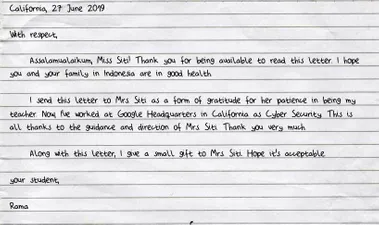 California, 27 June 2019
With respect,
Assalamualaikum, Miss Siti! Thank you for being available to read this letter. I hope
you and your family in Indonesia are in good health.
I send this letter to Mrs Siti as a form of gratitude for her patience in being my
teacher. Now, I've worked at Google Headquarters in California as Cyber Security. This is
all thanks to the guidance and direction of Mrs Siti. Thank you very much.
Along with this letter, I give a small gift to Mrs Siti. Hope it's acceptable.
your student,
Rama